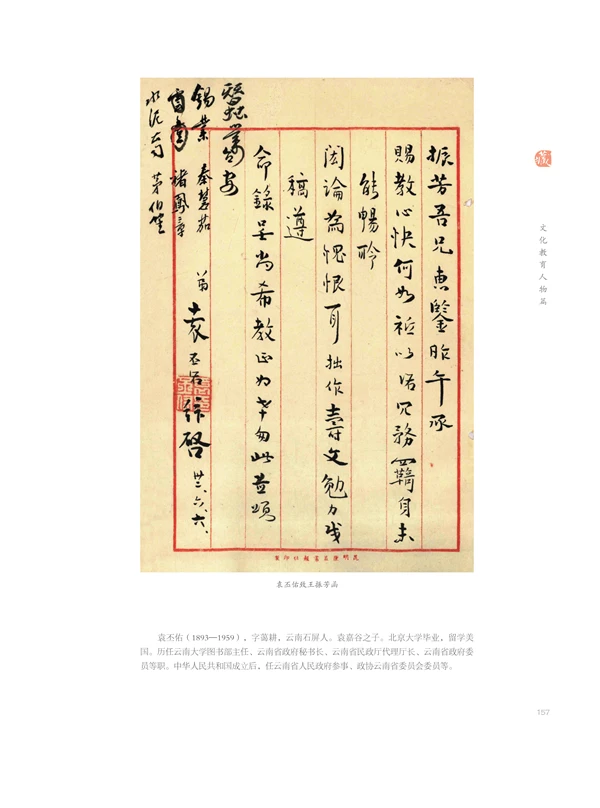 振芳吾兄惠鑒昨午承
賜教心快何如祇以俗冗務羈身未
能暢聆
閎論為愧恨耳拙作壽文勉力成
稿遵
命錄呈尚希教正為幸勿此並頌
安
弟袁丕佑拜啓 卅三、六、六、
蠶絲
錫業 秦慧茄
褚鳳章
水泥公司 茅伯笙
昆明
袁丕佑致王振芳函
文化教育人物篇
袁丕佑(1893—1959),字蔼耕,云南石屏人。袁嘉谷之子。北京大学毕业,留学美
国。历任云南大学图书部主任、云南省政府秘书长、云南省民政厅代理厅长、云南省政府委
员等职。中华人民共和国成立后,任云南省人民政府参事、政协云南省委员会委员等。
157